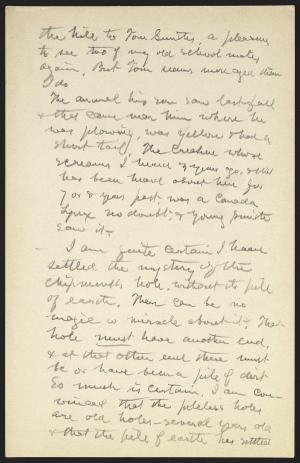 the hill to Tom Smiths, a pleasure
to see two of my old school mates
again. But Tom seems more aged than
I do
The animal his son saw last fall
& that came near him where he
was plowing, was yellow & had a
short tail. The creature whose
screams I heard 2 years ago, & that
has been heard about him for
7 or 8 years past, was a Canada
Lynx no doubt; & young Smith
saw it.
– I am quite certain I have
settled the mystery of the
chipmunks hole, without its pile
of earth. There can be no
magic or miracle about it. That
hole must have another end,
& at that other end there must
be or have been a pile of dirt.
So much is certain. I am con-
vinced that the pileless holes
are old holes – several years old
& that the pile of earth has settled